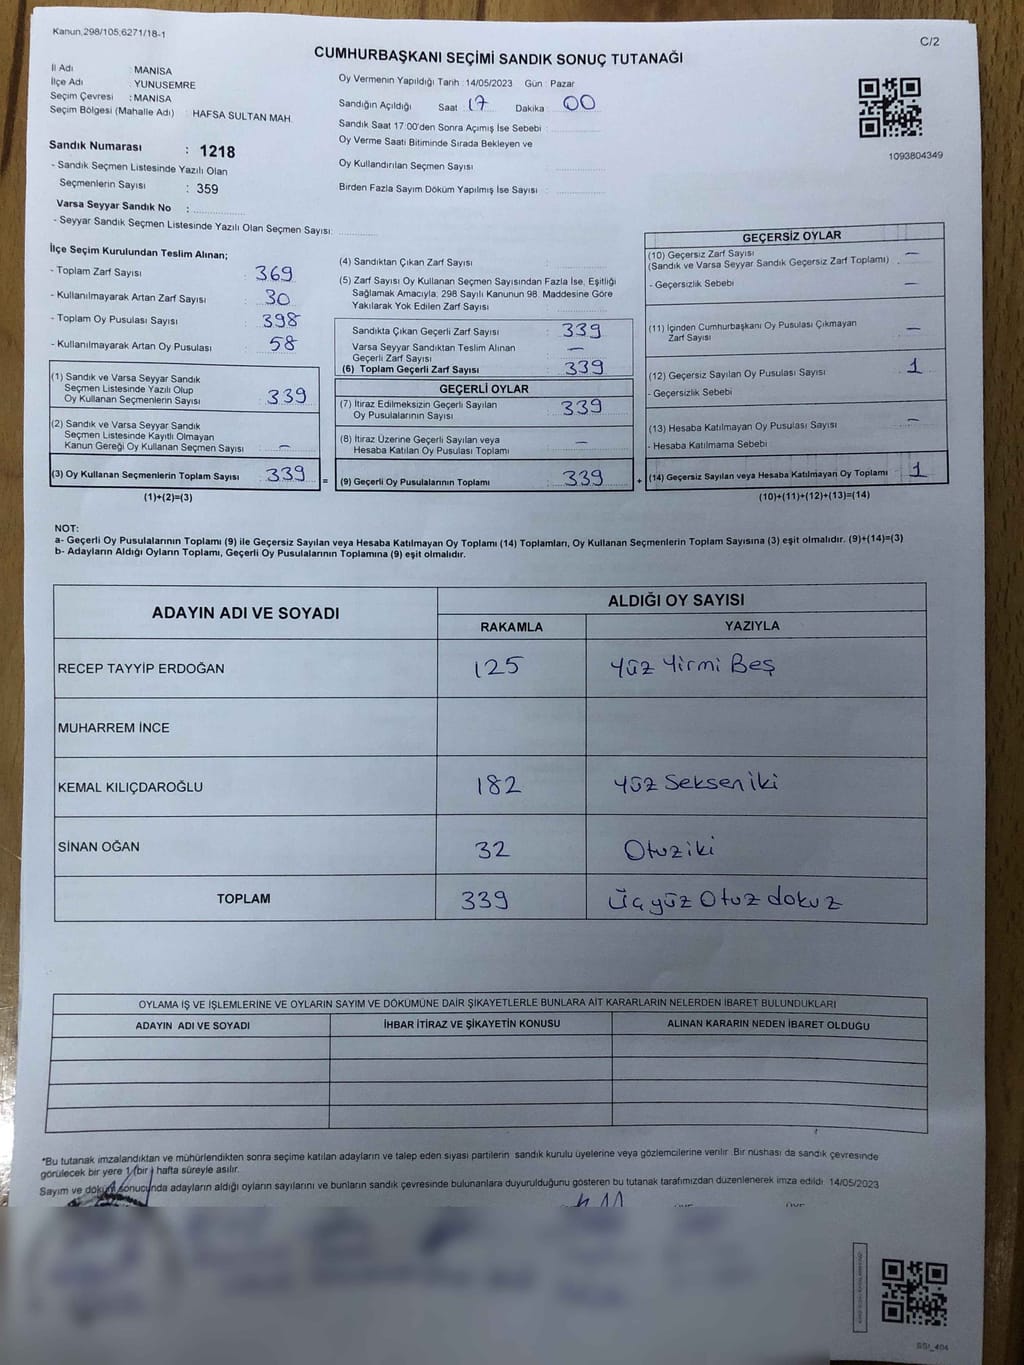 Kanun,298/105,6271/18-1
C/2
CUMHURBAŞKANI SEÇİMİ SANDIK SONUÇ TUTANAĞI
İl Adı : MANİSA
İlçe Adı : YUNUSEMRE
Seçim Çevresi : MANİSA
Seçim Bölgesi (Mahalle Adı) : HAFSA SULTAN MAH.
Sandık Numarası : 1218
- Sandık Seçmen Listesinde Yazılı Olan
Seçmenlerin Sayısı : 359
Varsa Seyyar Sandık No :
- Seyyar Sandık Seçmen Listesinde Yazılı Olan Seçmen Sayısı:
Oy Vermenin Yapıldığı Tarih : 14/05/2023 Gün : Pazar
Sandığın Açıldığı Saat 17 Dakika 00
Sandık Saat 17:00'den Sonra Açımış İse Sebebi :
Oy Verme Saati Bitiminde Sırada Bekleyen ve
Oy Kullandırılan Seçmen Sayısı
Birden Fazla Sayım Döküm Yapılmış İse Sayısı :
1093804349
İlçe Seçim Kurulundan Teslim Alınan;
- Toplam Zarf Sayısı : 369
- Kullanılmayarak Artan Zarf Sayısı : 30
- Toplam Oy Pusulası Sayısı : 398
- Kullanılmayarak Artan Oy Pusulası : 58
(1) Sandık ve Varsa Seyyar Sandık
Seçmen Listesinde Yazılı Olup
Oy Kullanan Seçmenlerin Sayısı : 339
(2) Sandık ve Varsa Seyyar Sandık
Seçmen Listesinde Kayıtlı Olmayan
Kanun Gereği Oy Kullanan Seçmen Sayısı : —
(3) Oy Kullanan Seçmenlerin Toplam Sayısı : 339
(1)+(2)=(3)
=
(4) Sandıktan Çıkan Zarf Sayısı :
(5) Zarf Sayısı Oy Kullanan Seçmen Sayısından Fazla İse, Eşitliği
Sağlamak Amacıyla, 298 Sayılı Kanunun 98. Maddesine Göre
Yakılarak Yok Edilen Zarf Sayısı :
Sandıkta Çıkan Geçerli Zarf Sayısı : 339
Varsa Seyyar Sandıktan Teslim Alınan
Geçerli Zarf Sayısı : —
(6) Toplam Geçerli Zarf Sayısı : 339
GEÇERLİ OYLAR
(7) İtiraz Edilmeksizin Geçerli Sayılan
Oy Pusulalarının Sayısı : 339
(8) İtiraz Üzerine Geçerli Sayılan veya
Hesaba Katılan Oy Pusulası Toplamı : —
(9) Geçerli Oy Pusulalarının Toplamı : 339
+
GEÇERSİZ OYLAR
(10) Geçersiz Zarf Sayısı
(Sandık ve Varsa Seyyar Sandık Geçersiz Zarf Toplamı) : —
- Geçersizlik Sebebi : —
(11) İçinden Cumhurbaşkanı Oy Pusulası Çıkmayan
Zarf Sayısı : —
(12) Geçersiz Sayılan Oy Pusulası Sayısı : 1
- Geçersizlik Sebebi
(13) Hesaba Katılmayan Oy Pusulası Sayısı : —
- Hesaba Katılmama Sebebi
(14) Geçersiz Sayılan veya Hesaba Katılmayan Oy Toplamı : 1
(10)+(11)+(12)+(13)=(14)
NOT:
a- Geçerli Oy Pusulalarının Toplamı (9) ile Geçersiz Sayılan veya Hesaba Katılmayan Oy Toplamı (14) Toplamları, Oy Kullanan Seçmenlerin Toplam Sayısına (3) eşit olmalıdır. (9)+(14)=(3)
b- Adayların Aldığı Oyların Toplamı, Geçerli Oy Pusulalarının Toplamına (9) eşit olmalıdır.
ADAYIN ADI VE SOYADI ALDIĞI OY SAYISI
RAKAMLA YAZIYLA
RECEP TAYYİP ERDOĞAN 125 Yüz Yirmi Beş
MUHARREM İNCE
KEMAL KILIÇDAROĞLU 182 Yüz Seksen iki
SİNAN OĞAN 32 Otuziki
TOPLAM 339 Üçyüz Otuz dokuz
OYLAMA İŞ VE İŞLEMLERİNE VE OYLARIN SAYIM VE DÖKÜMÜNE DAİR ŞİKAYETLERLE BUNLARA AİT KARARLARIN NELERDEN İBARET BULUNDUKLARI
ADAYIN ADI VE SOYADI İHBAR İTİRAZ VE ŞİKAYETİN KONUSU ALINAN KARARIN NEDEN İBARET OLDUĞU
*Bu tutanak imzalandıktan ve mühürlendikten sonra seçime katılan adayların ve talep eden siyasi partilerin sandık kurulu üyelerine veya gözlemcilerine verilir. Bir nüshası da sandık çevresinde
görülecek bir yere 1 (bir) hafta süreyle asılır.
Sayım ve döküm sonucunda adayların aldığı oyların sayılarını ve bunların sandık çevresinde bulunanlara duyurulduğunu gösteren bu tutanak tarafımızdan düzenlenerek imza edildi. 14/05/2023